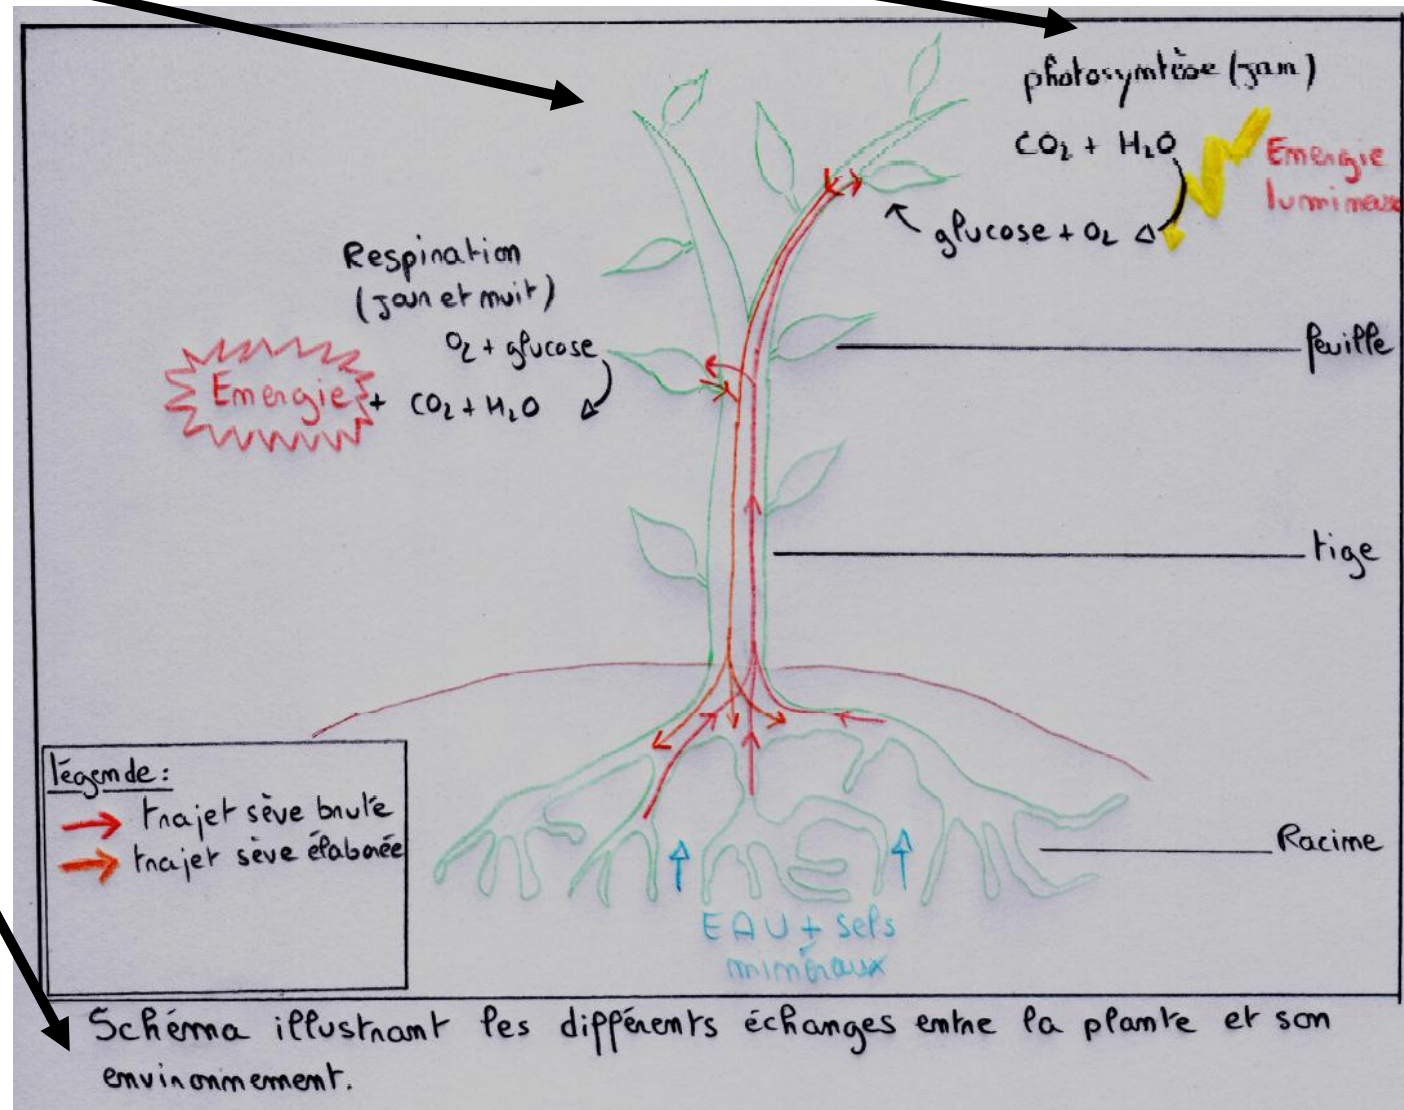 photosyntèse (jour)
CO₂ + H₂O
Energie
lumineuse
glucose + O₂
Respiration
(jour et nuit)
O₂ + glucose
Energie + CO₂ + H₂O
feuille
tige
légende :
trajet sève brute
trajet sève élaborée
Racine
EAU + sels
minéraux
Schéma illustrant les différents échanges entre la plante et son
environnement.